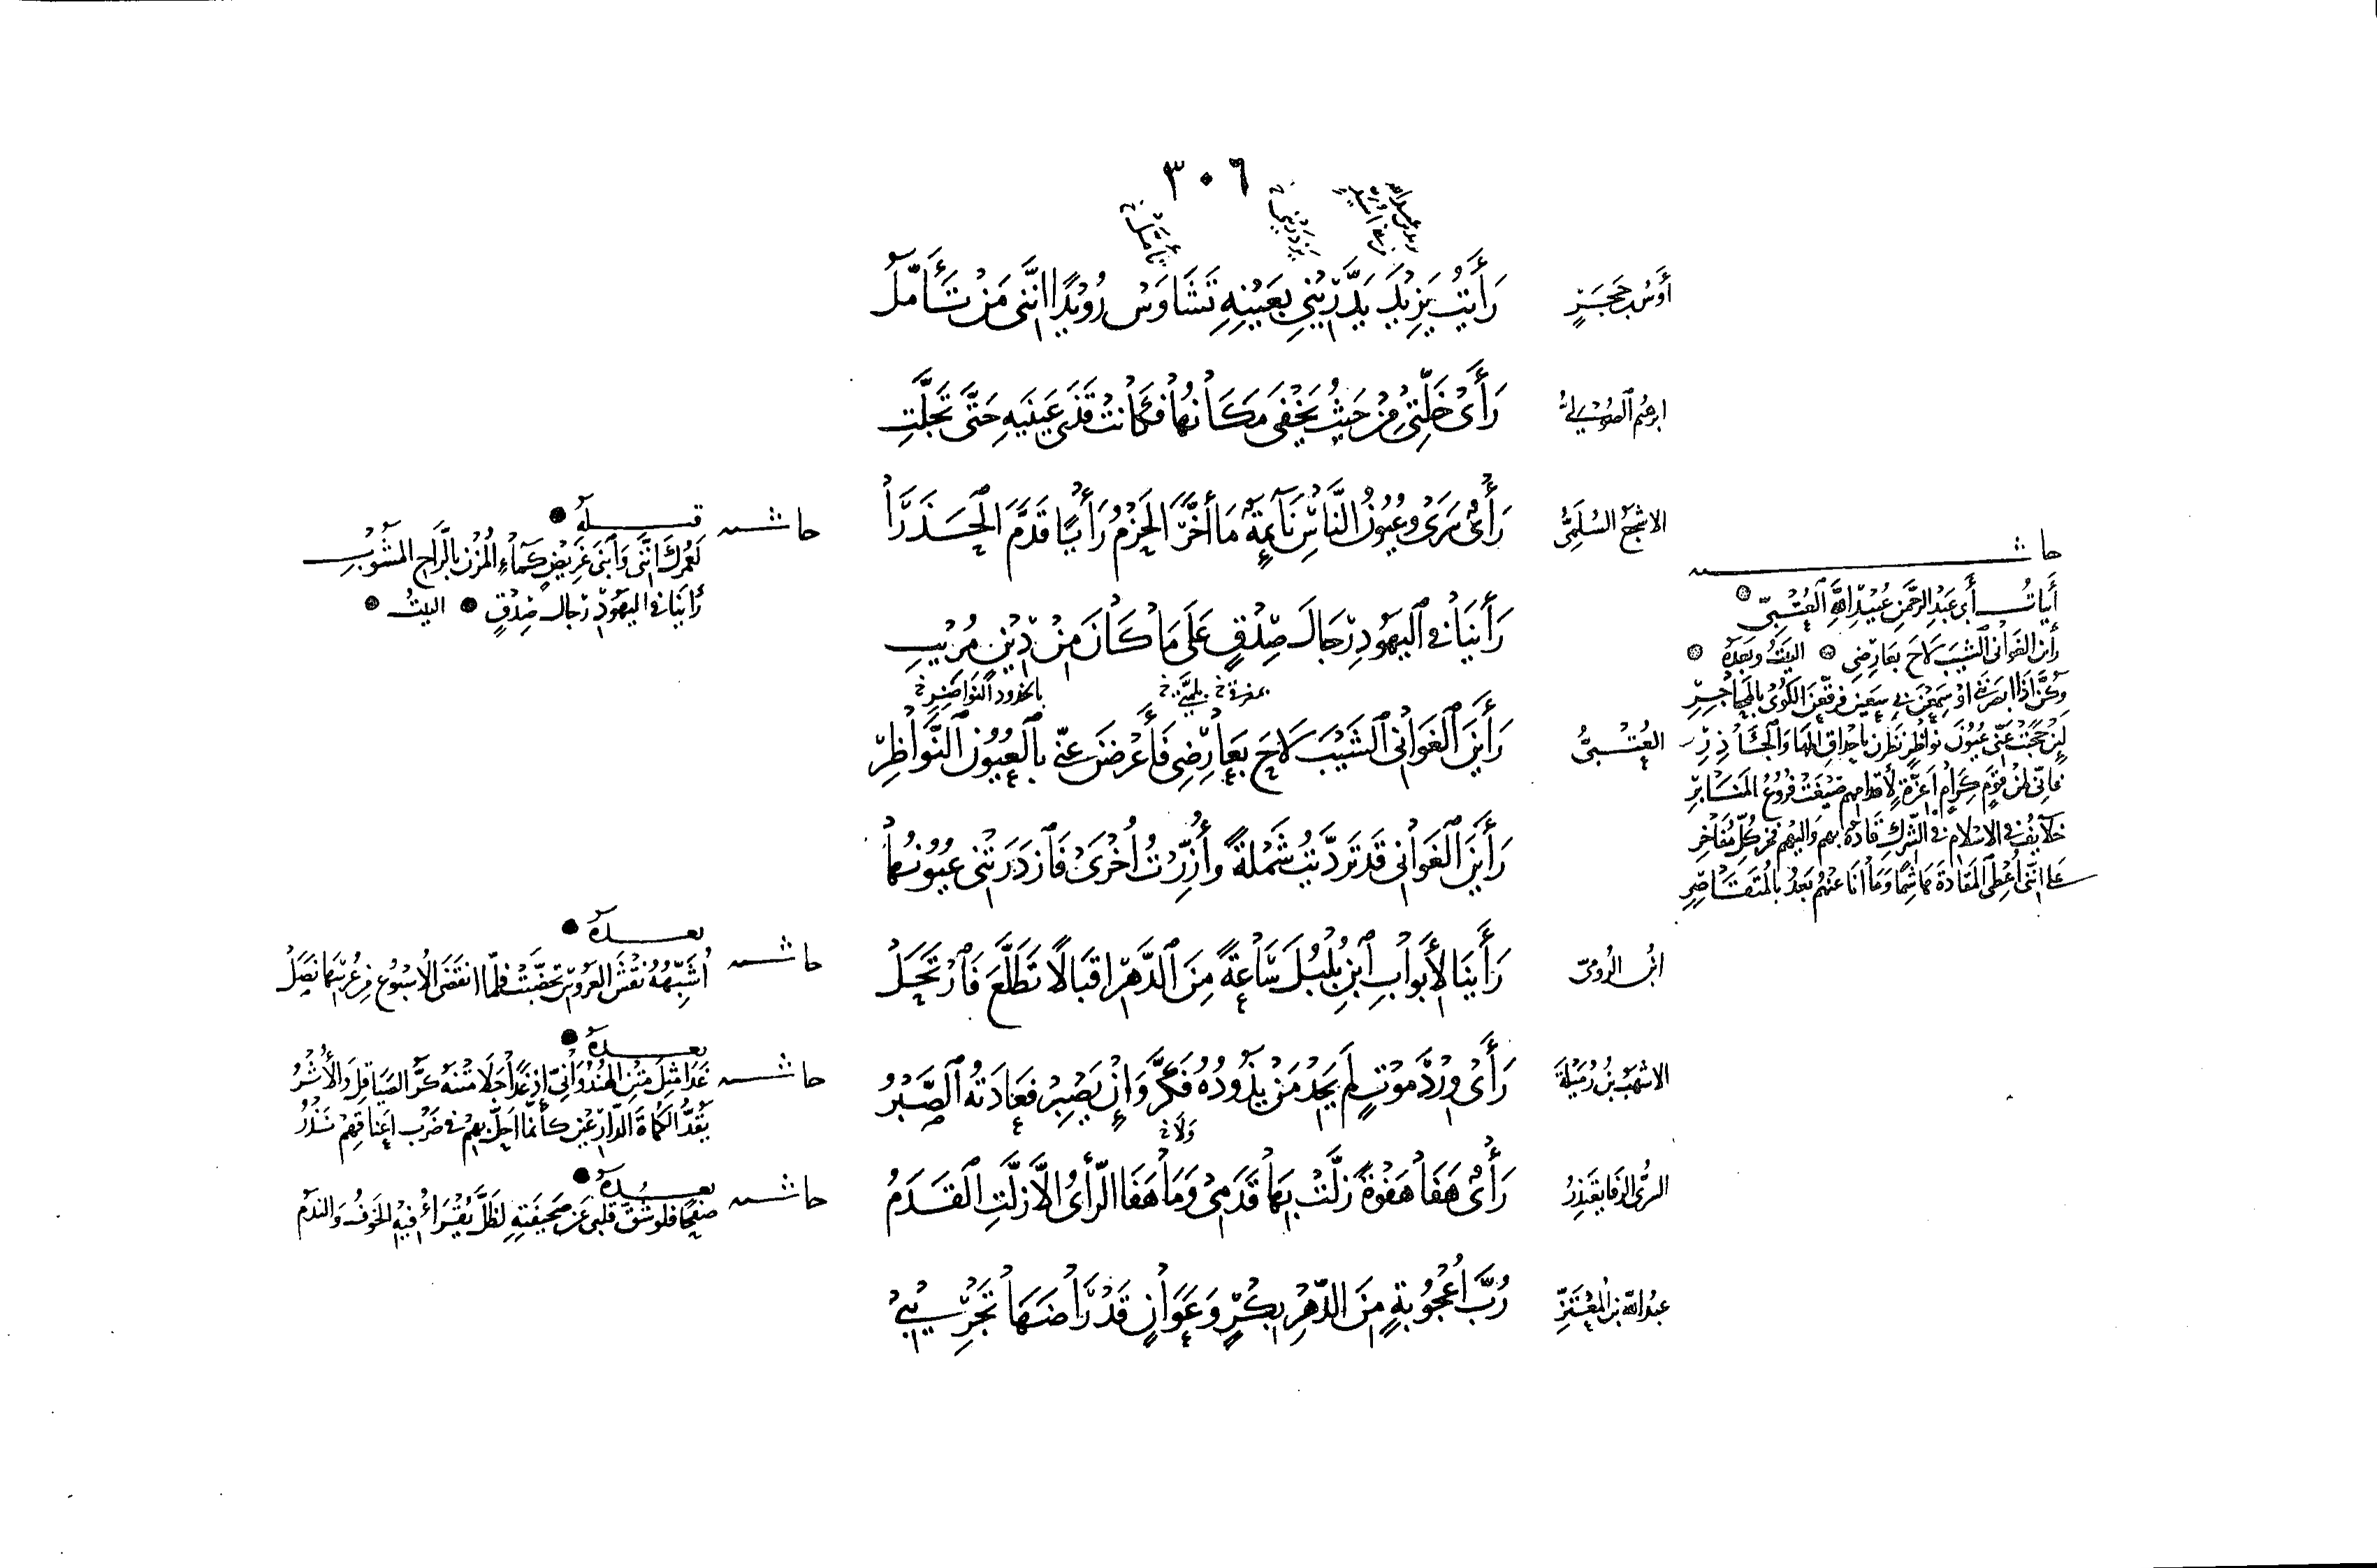 ٣٠٦
تأمل
تزدريني
أوس بن حجر
رَأَيْتُ يَزِيدَ يَدَّرِينِي بِعَيْنِهِ تَشَاوَسْ رُوَيْدًا اِنَّنِي مَنْ تَأَمَّلُ
ابرهيم الصولي
رَأَى خَلَّتِي مِنْ حَيْثُ يَخْفَى مَكَانُهَا فَكَانَتْ قَذَى عَيْنَيْهِ حَتَّى تَجَلَّتِ
الاشجع السُّلَمِيُّ
رَأْيٌ سَرَى وَعُيُونُ النَّاسِ نَائِمَةٌ مَا أَخَّرَ الحَزْمَ رَأْيًا قَدَّمَ الحَذَرَا
حاشية
قبله
لَعَمْرُكَ انَّنِي وَابْنَي غَرِيضٍ كَمَاءِ المُزْنِ بالرَّاحِ المَشُوبِ
رَأَيْنَا في اليَهُودِ رِجَالَ صِدْقٍ البيتُ
رَأَيْنَا في اليَهُودِ رِجَالَ صِدْقٍ عَلَى مَا كَانَ مِنْ دِينٍ مُرِيبِ
بمفرقي خ بلمتي خ
بالخدود النواضر خ
العُتْبِيُّ
رَأَيْنَ الغَوَانِي الشَّيْبَ لَاحَ بِعَارِضِي فَأَعْرَضْنَ عَنِّي بِالعُيُونِ النَّوَاظِرِ
حاشية
أَبْيَاتُ أَبِي عَبْدِ الرَّحْمَنِ عُبَيْدِ اللَّهِ العُتْبِيِّ
رأين الغواني الشيب لاح بعارضي البيت وبعده
وَكُنَّ إذَا ابْصَرْنَنِي اوْ سَمِعْنَ بِي سَعَيْنَ فَرَقَّعْنَ الكُوَى بِالمَحَاجِرِ
لَئِنْ حُجِبَتْ عَنِّي عُيُونُ نَوَاظِرٍ نَظَرْنَ بِأَحْدَاقِ المَهَا وَالجَآذِرِ
فَانِّي لَمِنْ قَوْمٍ كِرَامٍ أَعِزَّةٍ لِأَقْدَامِهِمْ صِيغَتْ فُرُوعُ المَنَابِرِ
خَلَائِفُ في الاسْلَامِ في الشِّرْكِ قَادَةٌ بِهِمْ وَاليْهِمْ فَخْرُ كُلِّ مُفَاخِرِ
عَلَى انَّنِي أُعْطِي المَقَادَةَ هَاشِمًا وَمَا أَنَا عَنْهُمْ بَعْدُ بِالمُتَقَاصِرِ
رَأَيْنَ الغَوَانِي قَدْ تَرَدَّيْتُ شَمْلَةً وَأُزِّرْتُ أُخْرَى فَازْدَرَتْنِي عُيُونُهَا
ابن الرومي
رَأَيْنَا لِأَبْوَابِ ابْنِ بُلْبُلَ سَاعَةً مِنَ الدَّهْرِ اقْبَالًا تَطَلَّعَ فَارْتَحَلْ
حاشية
بعده
أُشَبِّهُهُ نَقْشَ العَرُوسِ تَخَضَّبَتْ فلمَّا انقَضَى الأُسْبُوعُ مِنْ عُرْسِهَا نَصَلْ
الاشهب بن رميلة
رَأَى وِرْدَ مَوْتٍ لَمْ يَجِدْ مَنْ يَذُودُهُ فَكَرَّ وَإِنْ يَصْبِرْ فَعَادَتُهُ الصَّبْرُ
حاشية
بعده
غَدَا مِثْلَ مَتْنِ الهُنْدُوَانِيِّ إِذْ غَدَا جَلَا مَتْنَهُ كَرُّ الصَّيَاقِلِ وَالأُشْرُ
يَقُدُّ الكُمَاةَ الدَّارِعِينَ كَأَنَّمَا أُحِلَّ بِهِمْ في ضَرْبِ اعْنَاقِهِمْ نَذْرُ
وَلَا خ
السري الرفا يعتذر
رَأْيٌ هَفَا هَفْوَةً زَلَّتْ بِهَا قَدَمِي وَمَا هَفَا الرَّأْيُ الَّا زَلَّتِ القَدَمُ
حاشية
بعده
صَفْحًا فلو شُقَّ قلبي عَنْ صَحِيفَتِهِ لَظَلَّ يُقْرَأُ فيه الخَوْفُ وَالنَّدَمُ
عبد الله بن المعتز
رُبَّ أُعْجُوبَةٍ مِنَ الدَّهْرِ بِكْرٍ وَعَوَانٍ قَدْ رَاضَهَا تَجْرِيبِي